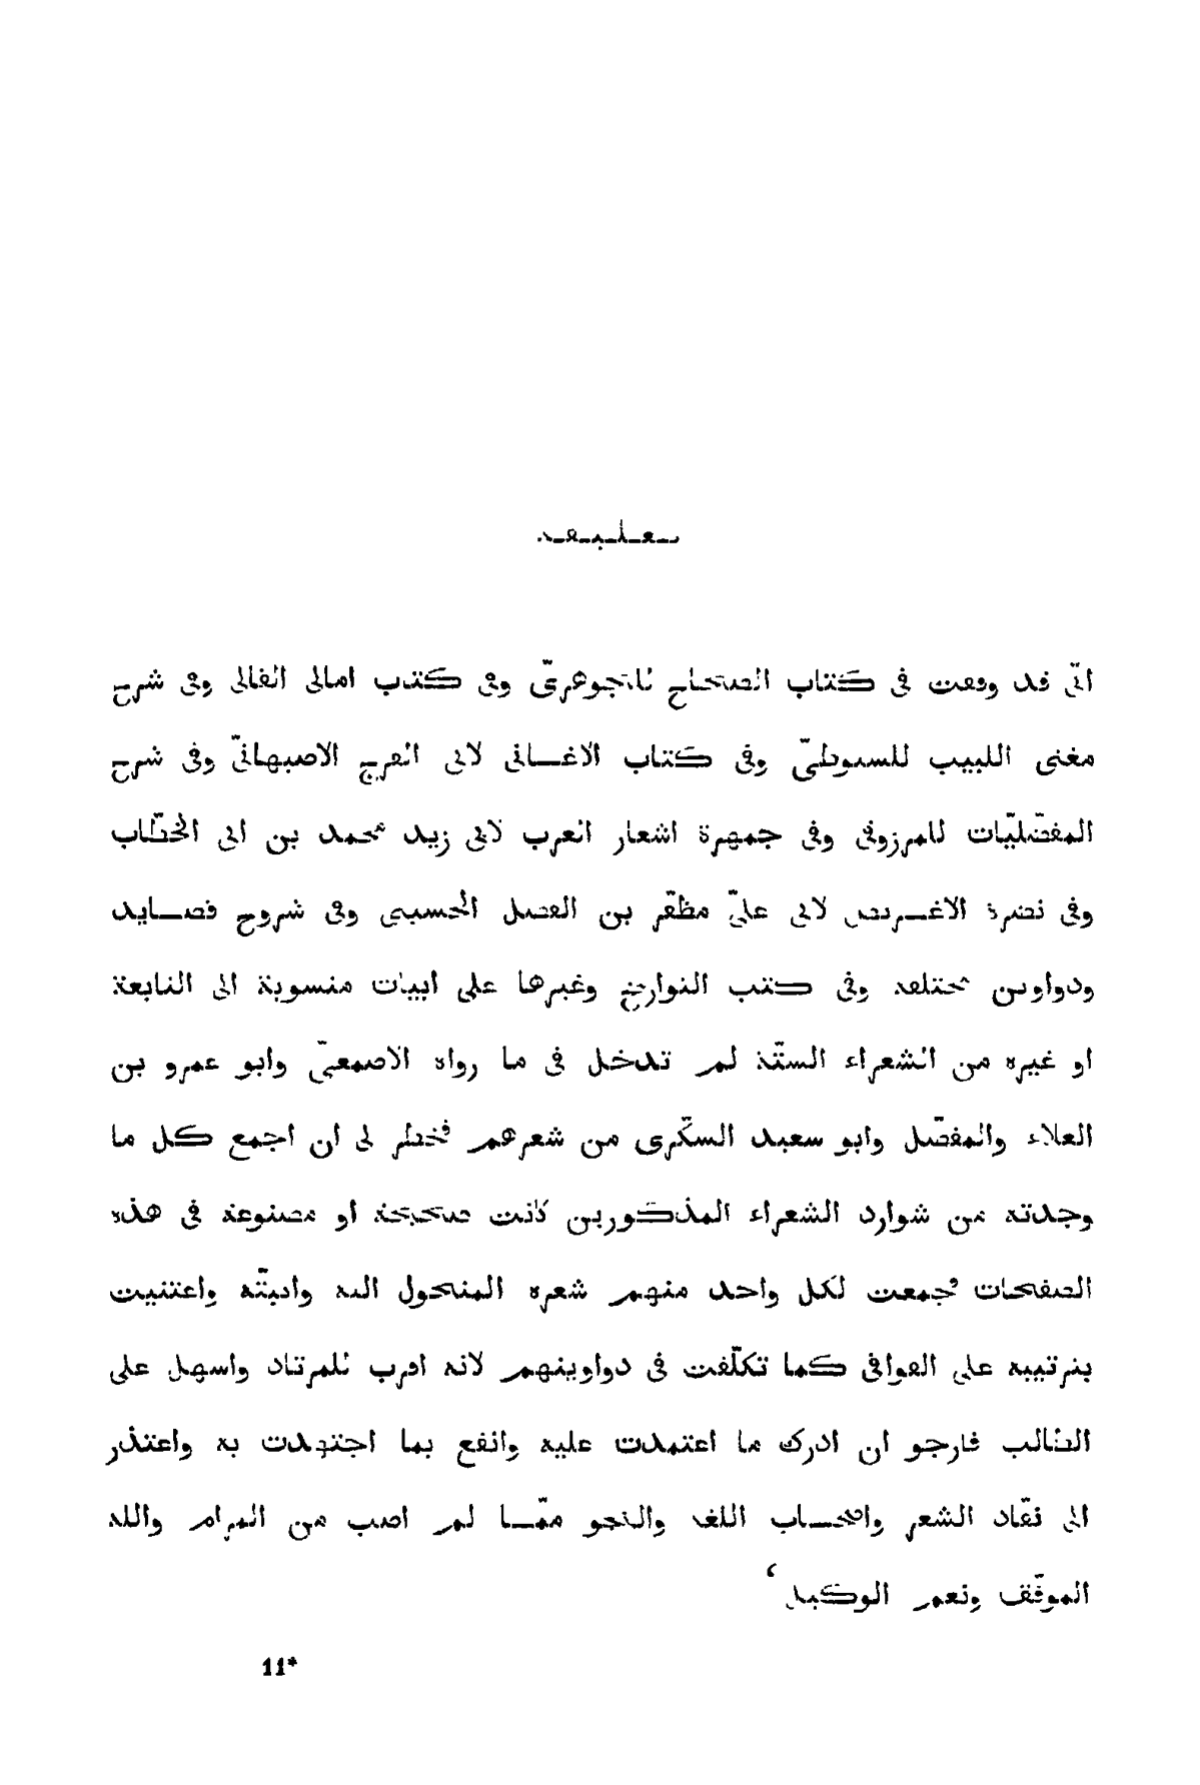 تعليقة
انّى قد وقعت فى كتاب الصحاح للجوهرىّ وفى كتاب امالى القالى وفى شرح
مغنى اللبيب للسيوطىّ وفى كتاب الاغانى لابى الفرج الاصبهانىّ وفى شرح
المفضّليّات للمرزوقى وفى جمهرة اشعار العرب لابى زيد محمد بن ابى الخطّاب
وفى نضرة الاغريض لابى علىّ مظفّر بن الفضل الحسينى وفى شروح قصايد
ودواوين مختلفة وفى كتب التواريخ وغيرها على ابيات منسوبة الى النابغة
او غيره من الشعراء الستّة لم تدخل فى ما رواه الاصمعىّ وابو عمرو بن
العلاء والمفضّل وابو سعيد السكّرى من شعرهم فخطر لى ان اجمع كل ما
وجدته من شوارد الشعراء المذكورين كانت صحيحة او مصنوعة فى هذه
الصفحات فجمعت لكل واحد منهم شعره المنحول اليه واثبتّه واعتنيت
بترتيبه على القوافى كما تكلّفت فى دواوينهم لانه اقرب للمرتاد واسهل على
الطالب فارجو ان ادرك ما اعتمدت عليه وانفع بما اجتهدت به واعتذر
الى نقّاد الشعر واصحاب اللغة والنحو ممّا لم اصب من المرام والله
الموفّق ونعم الوكيل ‘
11*